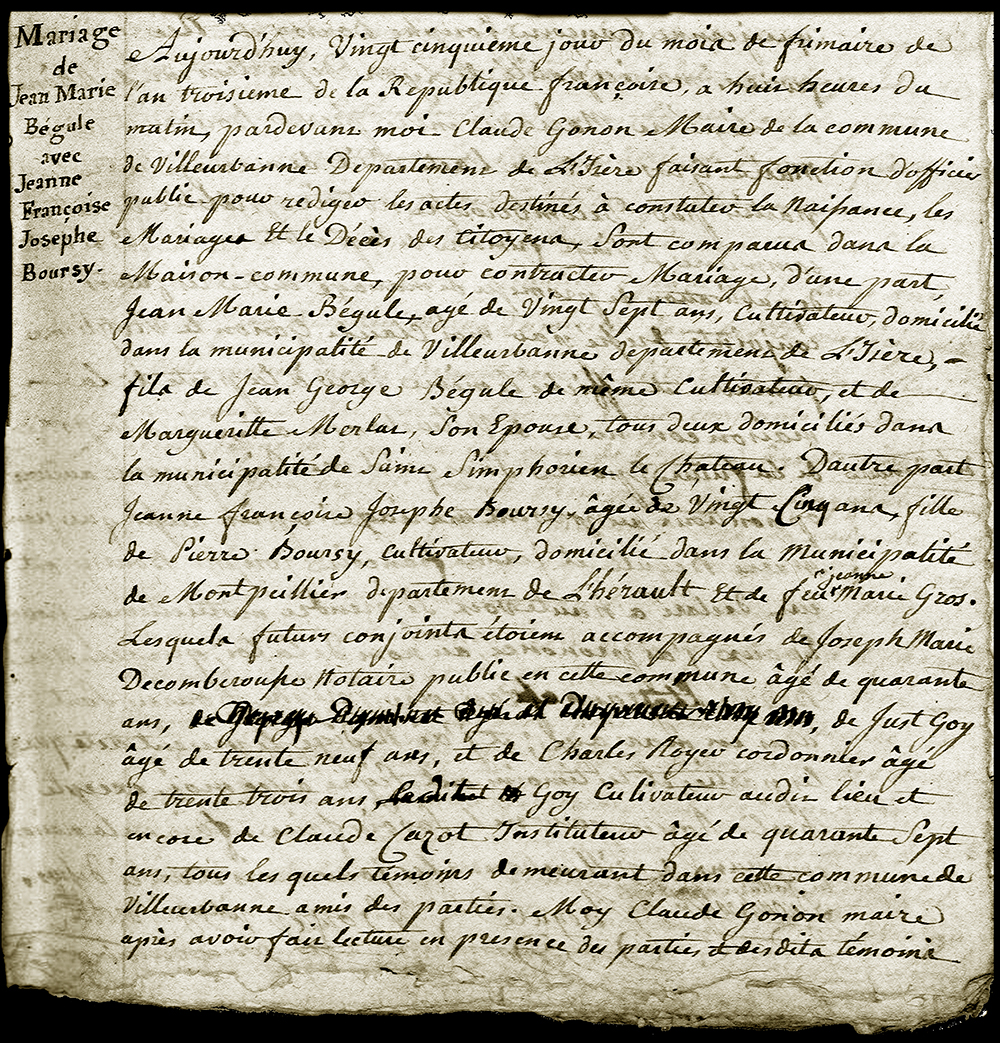 Mariage
de
Jean Marie
Bégule
avec
Jeanne
Françoise
Josephe
Boursy.
Aujourd'huy, Vingt cinquieme jour du mois de frimaire de
l'an troisieme de la Republique françoise, a huit heures du
matin, pardevant moi Claude Gonon Maire de la commune
de Villeurbanne Departement de L'Isère faisant fonction d'officier
public pour rediger les actes destinés à constater la Naissance, les
Mariages Et le Décès des Citoyens, Sont comparus dans la
Maison-commune, pour contracter Mariage, d'une part,
Jean Marie Bégule, agé de Vingt Sept ans, Cultivateur, domicilié
dans la municipalité de Villeurbanne departement de L'Isère, -
fils de Jean George Bégule de même Cultivateur, et de
Margueritte Merlat, Son Epouse, tous deux domiciliés dans
la municipalité de Saint Simphorien le Chateau. Dautre part
Jeanne françoise Josephe Boursy, âgée de Vingt Cinq ans, fille
de Pierre Boursy, Cultivateur, domicilié dans la Municipalité
jeanne
de Montpeillier departement de L'hérault Et de feüe Marie Gros.
Lesquels futurs conjoints étoient accompagnés de Joseph Marie
Decomberousse Notaire public en cette commune âgé de quarante
ans, de Just Goy
âgé de trente neuf ans, et de Charles Royer cordonnier âgé
de trente trois ans, Goy Cultivateur audit lieu et
encore de Claude Cazot Instituteur âgé de quarante Sept
ans, tous les quels témoins demeurant dans cette commune de
Villeurbanne amis des parties. Moy Claude Gonon maire
après avoir fait lecture en presence des parties et desdits témoins